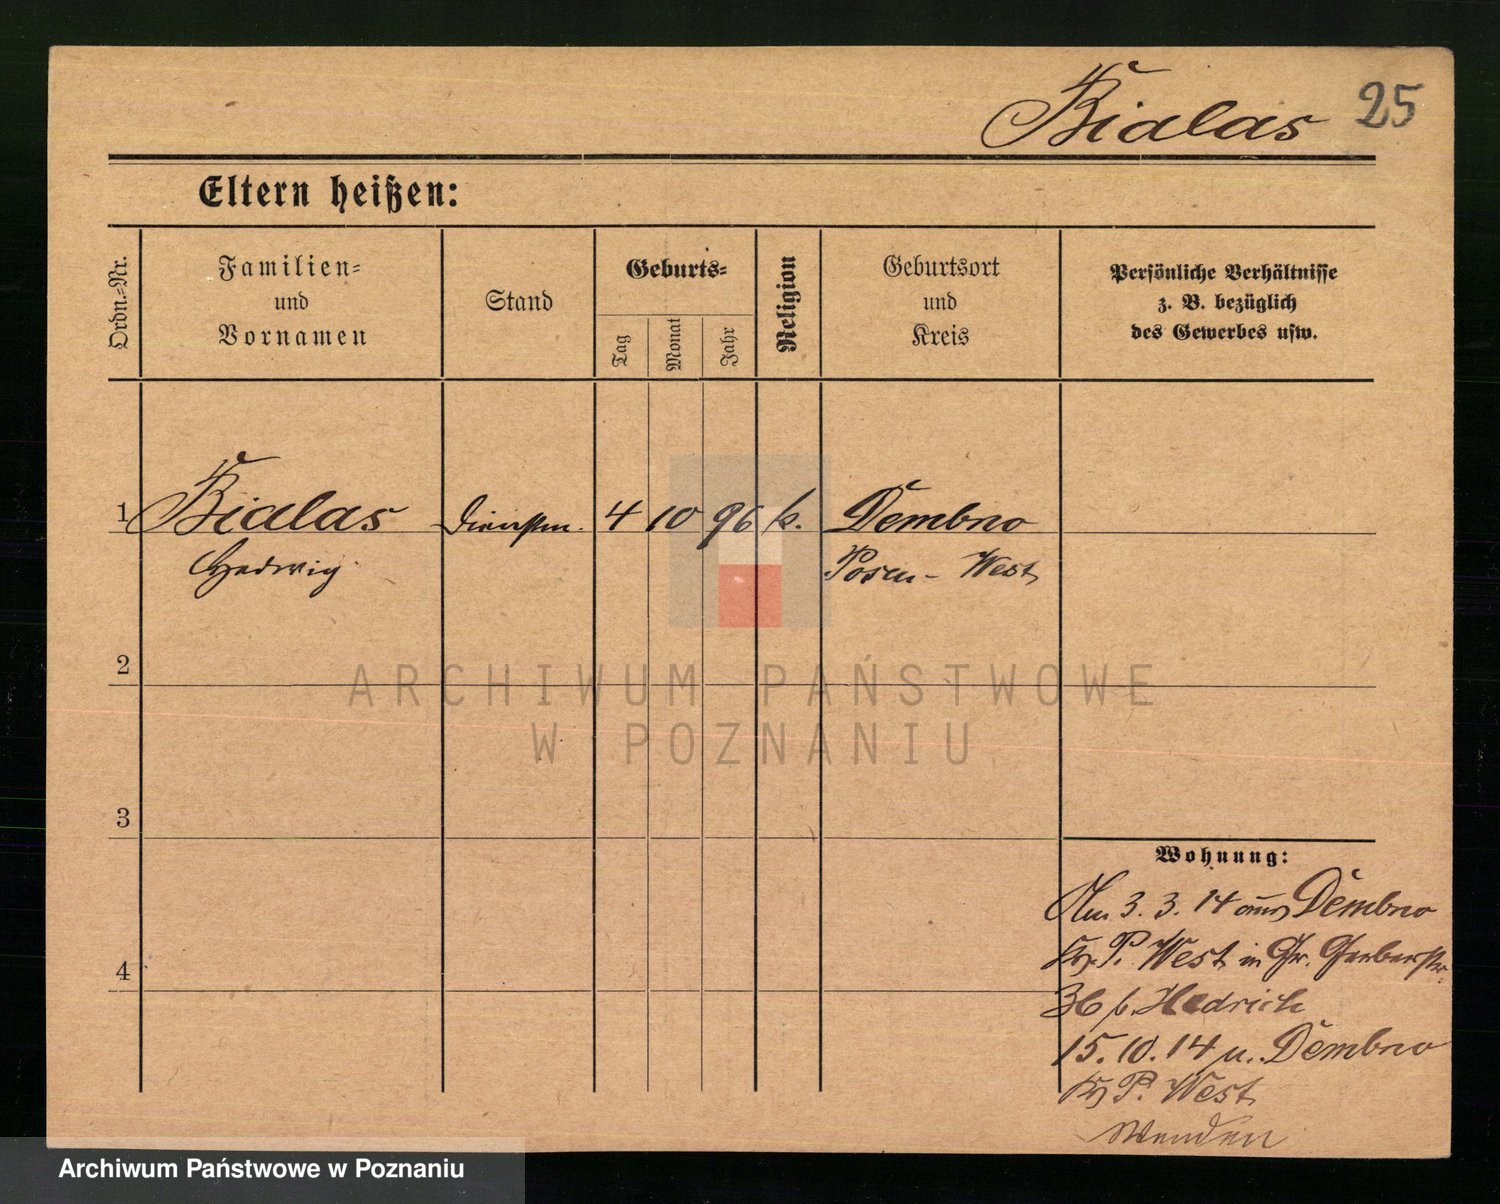 Bialas 25
Eltern heißen:
Ordn.-Nr.
Familien-
und
Vornamen
Stand
Geburts-
Tag
Monat
Jahr
Religion
Geburtsort
und
Kreis
Persönliche Verhältnisse
z. B. bezüglich
des Gewerbes usw.
1 Bialas Dienstm. 4 10 96 k. Dembno
Hedwig Posen - West
2
ARCHIWUM PAŃSTWOWE
W POZNANIU
3
Wohnung:
Am 3. 3. 14 aus Dembno
Kr. P. West in Gr. Gerberstr.
36 b. Hedrich
15. 10. 14 n. Dembno
Kr P. West
Wenden
4
Archiwum Państwowe w Poznaniu